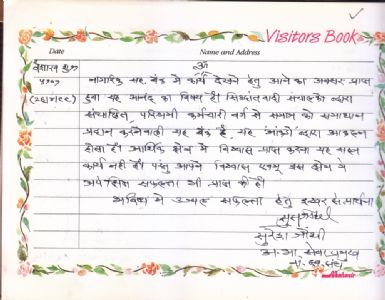 Visitors Book
Date Name and Address
ॐ
वैशाख शुक्ल नागरिक सह. बैंक में कार्य देखने हेतु आने का अवसर प्राप्त
हुवा यह आनंद का विषय है। सिद्धांतवादी संचालकों द्वारा
संचालित, परिश्रमी कर्मचारी वर्ग से समाज को समाधान
प्रदान करनेवाली यह बैंक है, यह आंकड़ों द्वारा
होता है। आर्थिक क्षेत्र में विश्वास प्राप्त करना यह सरल
कार्य नहीं है। परंतु आपने विश्वास एवम् इस क्षेत्र में
अपेक्षित सफलता भी प्राप्त की है।
भविष्य में उज्वल सफलता हेतु इश्वर से प्रार्थना
अ. भा. सेवा प्रमुख
रा. स्व. संघ